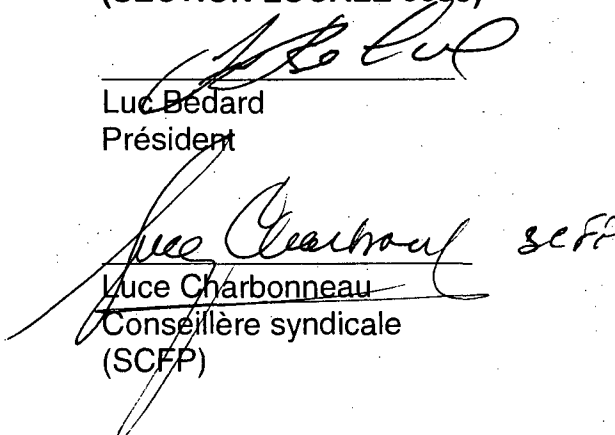 Luc Bédard
Président
Luce Charbonneau scfp
Luce Charbonneau
Conseillère syndicale
(SCFP)